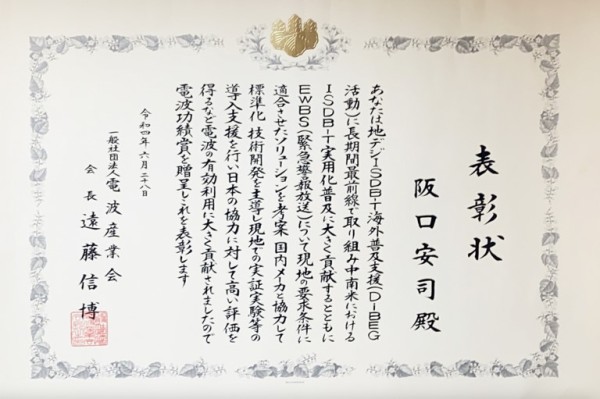 表彰状
阪口安司殿
あなたは地デジISDB-T海外普及支援(DiBEG
活動)に長期間最前線で取り組み中南米における
ISDB-T実用化普及に大きく貢献するとともに
EWBS(緊急警報放送)について現地の要求条件に
適合させたソリューションを考案 国内メイカと協力して
標準化 技術開発を主導し現地での実証実験等の
導入支援を行い日本の協力に対して高い評価を
得るなど電波の有効利用に大きく貢献されましたので
電波功績賞を贈呈しこれを表彰します
令和四年六月二八日
一般社団法人電波産業会
会長遠藤信博